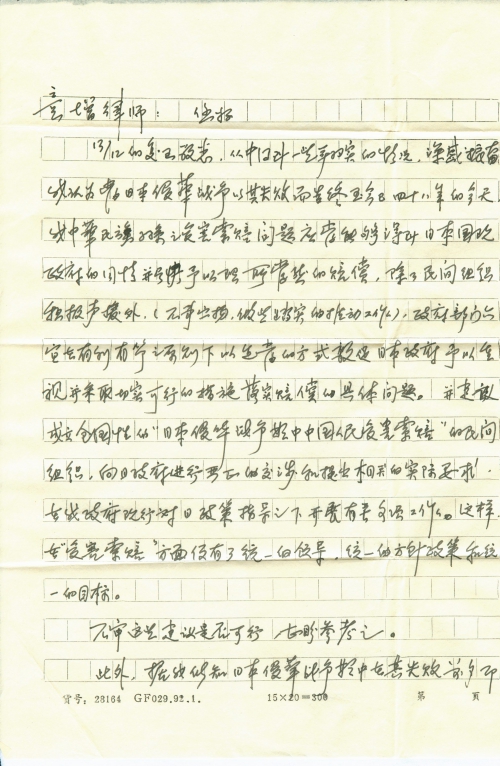 童增律师: 您好
13/12的复函敬悉,从中得知一些事物实的情况,深感振奋
我认为自日本侵华战争以其失败而告终至今已四十八年的今天
我中华民族对其之受害索赔问题应当能够得到日本国现
政府的同情并予以理所当然的赔偿,除了民间组织
积极声援外,(不事张扬,做些踏实的推动工作),政府部门亦
宜在有利有节之原则下以适当的方式敦促日本政府予以重
视并采取切实可行的措施落实赔偿的具体问题。并建议
成立全国性的"日本侵华战争中中国人民受害索赔"的民间
组织,向日政府进行严正的交涉和提出相关的实际要求,
在我政府现行对日政策指导之下开展有关各项工作。这样
在"受害索赔"方面便有了统一的领导,统一的方针政策和统
一的目标。
不审这些建议是否可行 古郎参考之。
此外,据我所知日本侵华战争中在其失败前夕即
货号:28164 GF029.92.1. 15×20=300 第 页